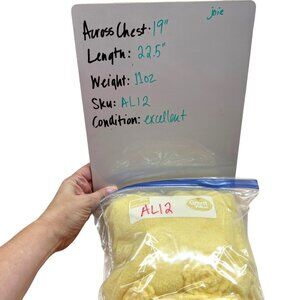 joie
Across Chest: 19"
Length: 22.5"
Weight: 11oz
Sku: AL12
Condition: excellent
AL12
Great Value